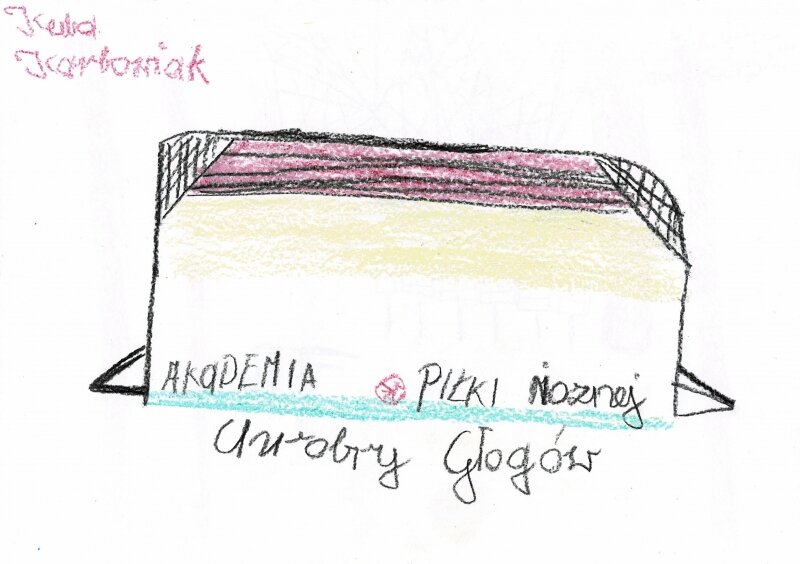 Kuba
Karbowiak
AKADEMIA PIŁKI Nożnej
Chrobry Głogów